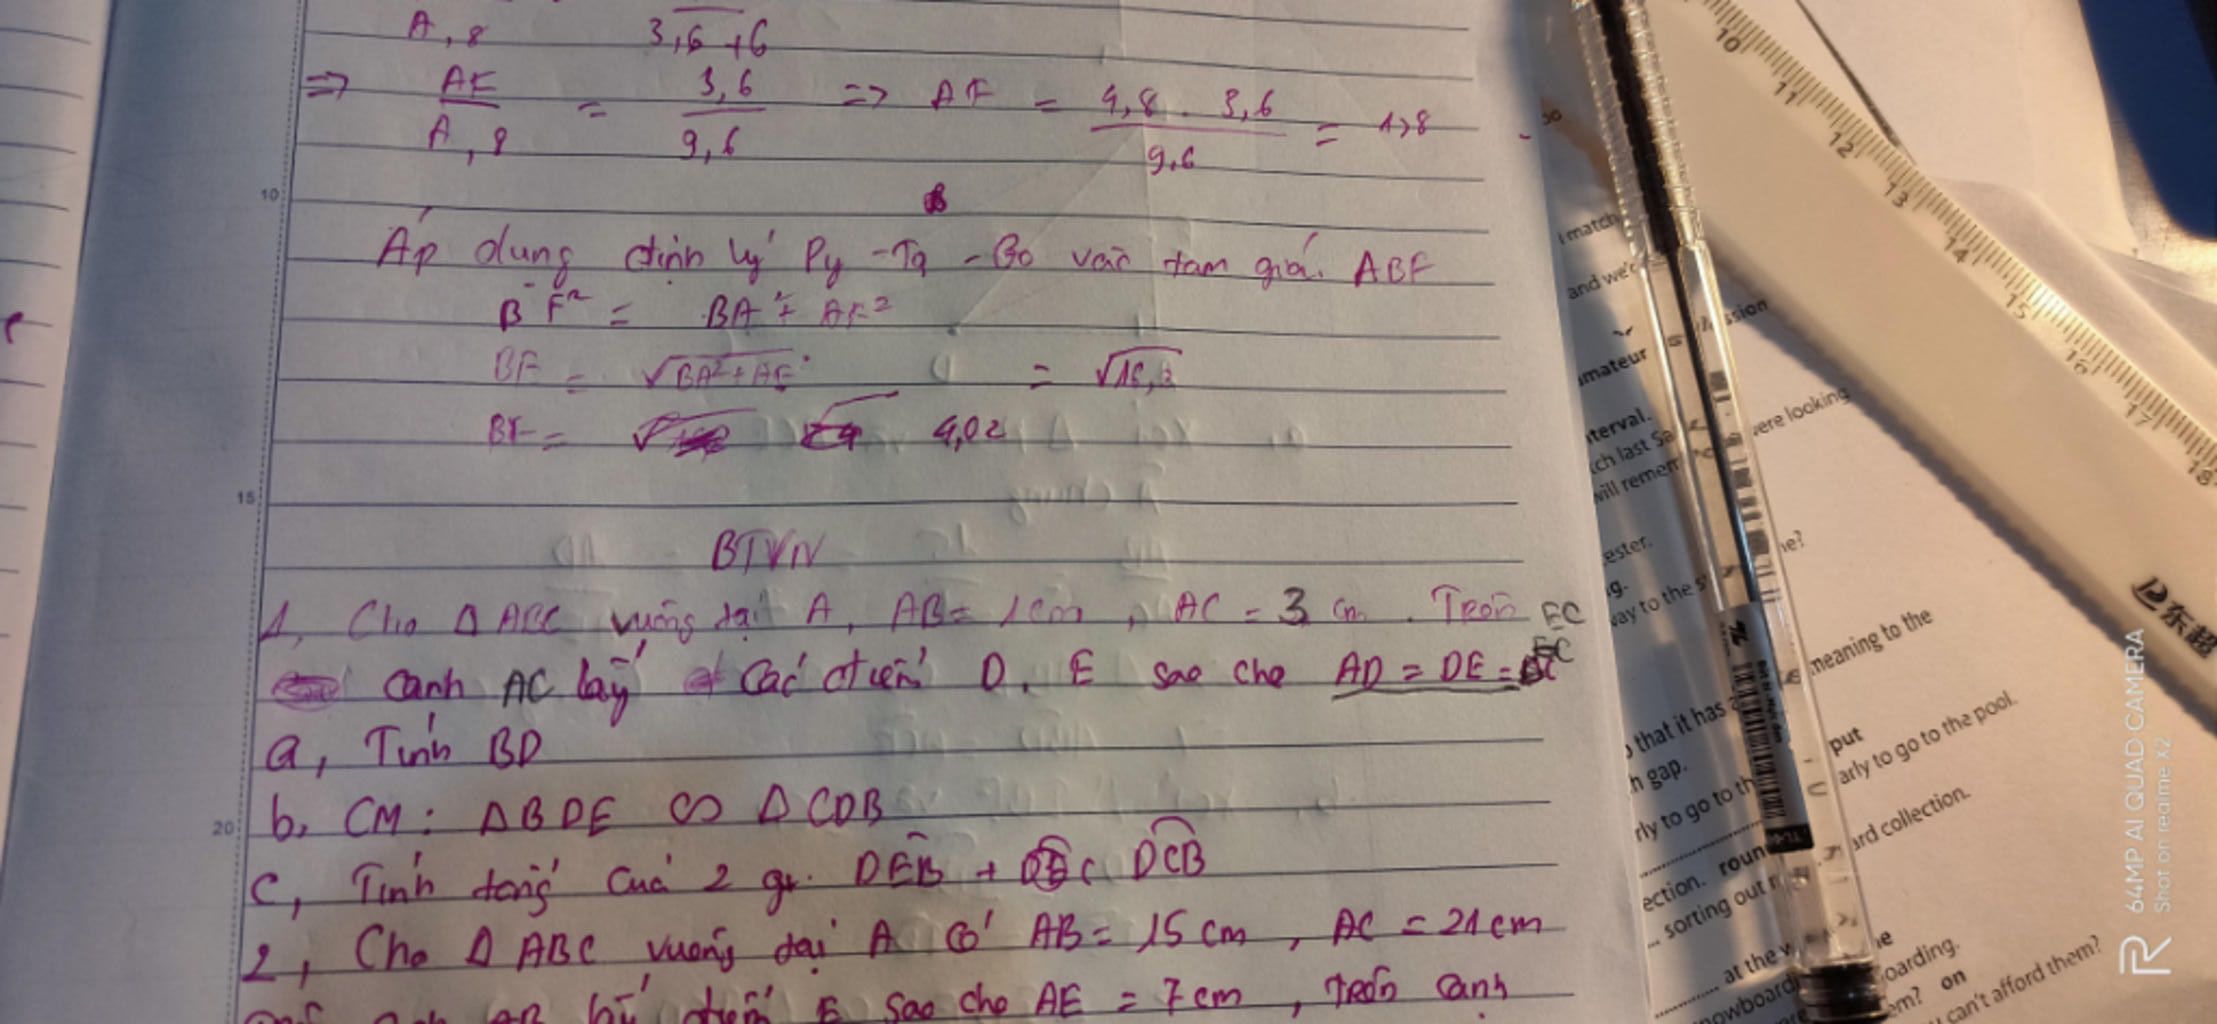 A,8 3,6+6
=> AF/A,8 = 3,6/9,6 => AF = 4,8 . 3,6/9,6 = 1,8
10
Áp dung định lý Py - Ta - Go vào tam giá. ABF
BF² = BA² + AF²
BF = √BA²+AF² = √16,2
BF = 4,02
15
BTVN
1, Cho Δ ABC vuông tại A, AB = 1cm, AC = 3 cm. Trên EC
canh AC lấy các điểm D, E sao cho AD = DE = EC
a, Tính BD
b, CM: ΔBDE ∽ ΔCDB
20
c, Tính tổng của 2 gr. DEB + DCB
2, Cho Δ ABC vuông tại A có AB = 15 cm, AC = 21 cm
AB lấy điểm E sao cho AE = 7 cm, trên canh
10 11 12 13 14 15 16 17 18
东超
i match
and we'
mateur
terval.
ch last Sa
will remem
were looking
ester.
g.
way to the s
meaning to the
that it has
put
h gap.
arly to go to the pool.
rly to go to th
ard collection.
ection. roun
sorting out
at the w
oarding.
nowboard
em? on
can't afford them?
64MP AI QUAD CAMERA
Shot on realme X2